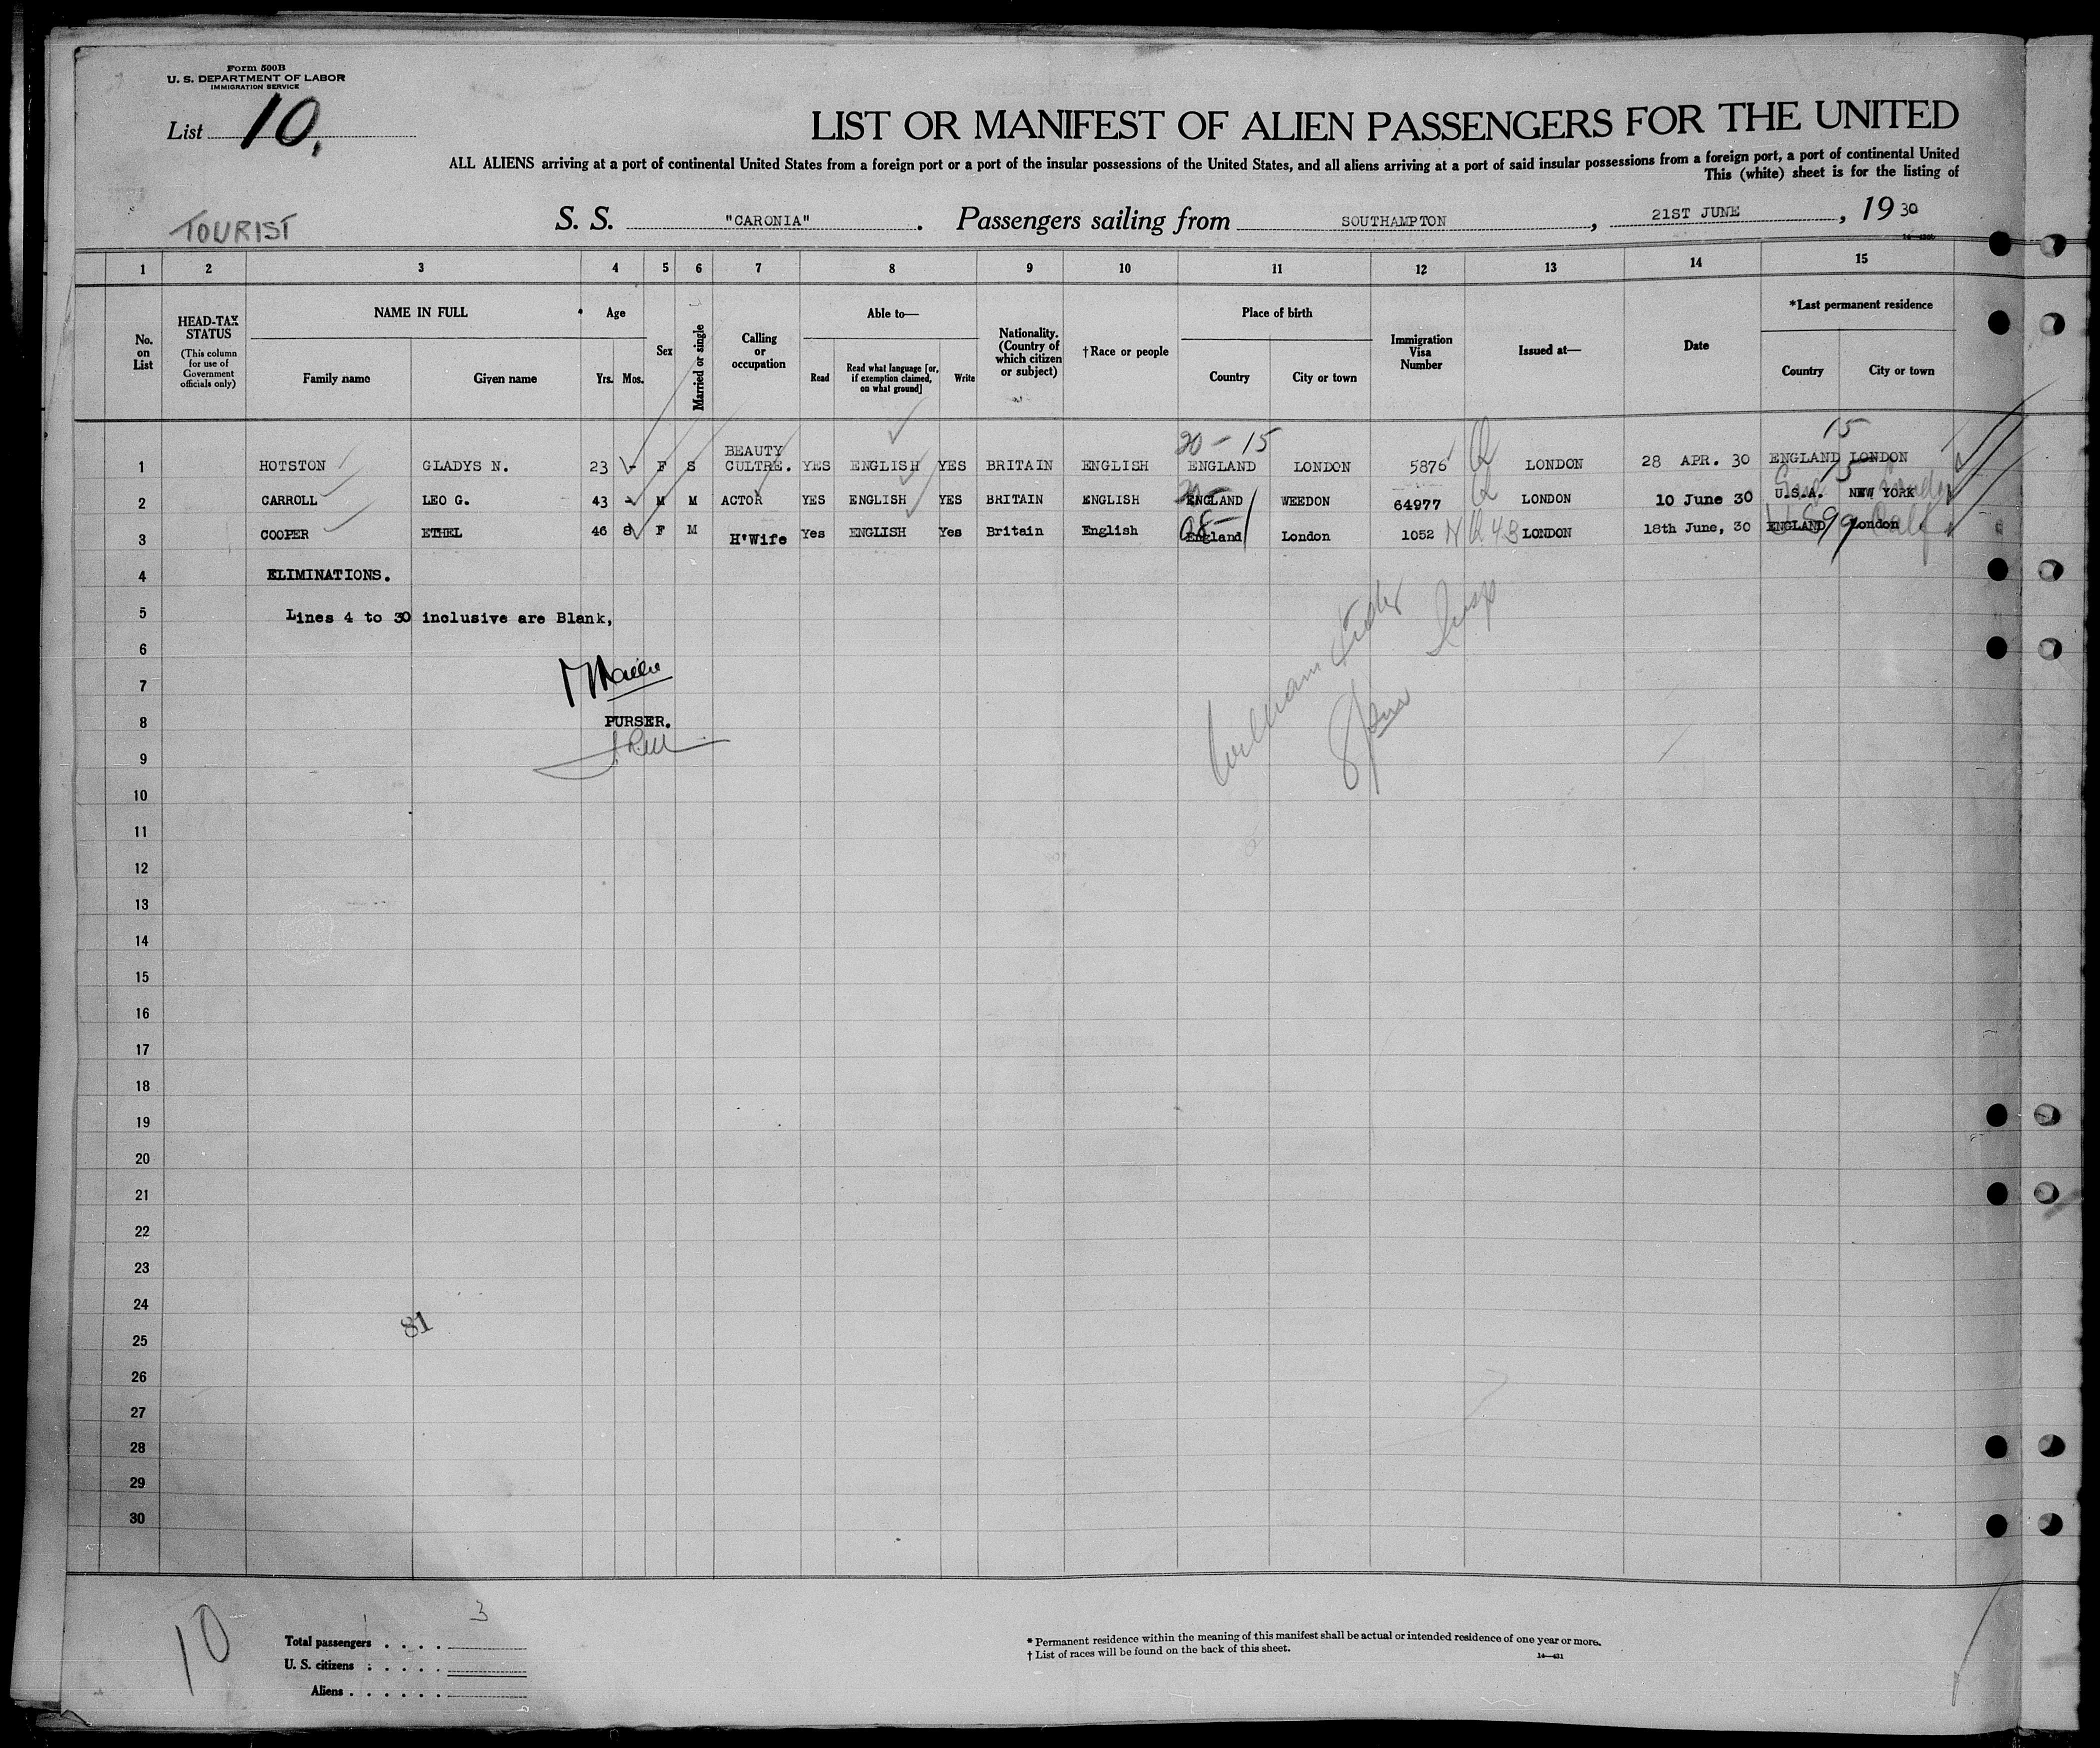 Form 500B
U. S. DEPARTMENT OF LABOR
IMMIGRATION SERVICE
List 10.
LIST OR MANIFEST OF ALIEN PASSENGERS FOR THE UNITED
ALL ALIENS arriving at a port of continental United States from a foreign port or a port of the insular possessions of the United States, and all aliens arriving at a port of said insular possessions from a foreign port, a port of continental United
This (white) sheet is for the listing of
TOURIST
S. S. "CARONIA". Passengers sailing from SOUTHAMPTON, 21ST JUNE, 1930
1 2 3 4 5 6 7 8 9 10 11 12 13 14 15
No. on List
HEAD-TAX STATUS
(This column for use of Government officials only)
NAME IN FULL
Family name
Given name
Age
Yrs. Mos.
Sex
Married or single
Calling or occupation
Able to—
Read
Read what language [or, if exemption claimed, on what ground]
Write
Nationality. (Country of which citizen or subject)
†Race or people
Place of birth
Country
City or town
Immigration Visa Number
Issued at—
Date
*Last permanent residence
Country
City or town
20 - 15 15
1 HOTSTON GLADYS N. 23 - F S BEAUTY CULTRE. YES ENGLISH YES BRITAIN ENGLISH ENGLAND LONDON 5876 Q LONDON 28 APR. 30 ENGLAND LONDON
15
2 CARROLL LEO G. 43 - M M ACTOR YES ENGLISH YES BRITAIN ENGLISH ENGLAND WEEDON 64977 Q LONDON 10 June 30 U.S.A. NEW YORK
3 COOPER ETHEL 46 8 F M H'Wife Yes ENGLISH Yes Britain English England London 1052 NQ 43 LONDON 18th June, 30 ENGLAND London 99 Calf
4 ELIMINATIONS.
5 Lines 4 to 30 inclusive are Blank,
6
7
8 PURSER.
9
10
11
12
13
14
15
16
17
18
19
20
21
22
23
24
81
25
26
27
28
29
30
10
3
Total passengers . . . .
U. S. citizens . . . . .
Aliens . . . . . .
* Permanent residence within the meaning of this manifest shall be actual or intended residence of one year or more.
† List of races will be found on the back of this sheet.
14—431